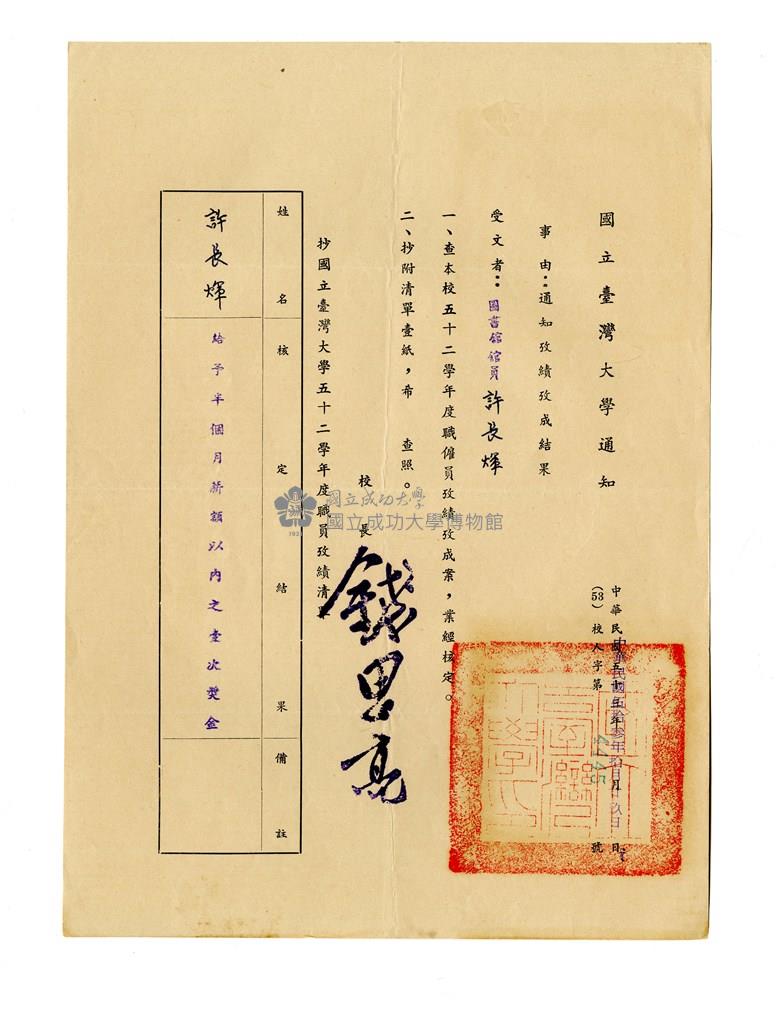 國立臺灣大學通知
中華民國五十年 月 日
中華民國伍拾叁年拾月 玖日
(53)校人字第4145號
事由:通知攷績攷成結果
受文者:圖書館館員 許長煇
一、查本校五十二學年度職僱員攷績攷成案,業經核定。
二、抄附清單壹紙,希 查照。
校長 錢思亮
抄國立臺灣大學五十二學年度職員攷績清
姓名 核定結果 備註
許長煇 給予半個月薪額以內之壹次獎金
國立成功大學
國立成功大學博物館
1931